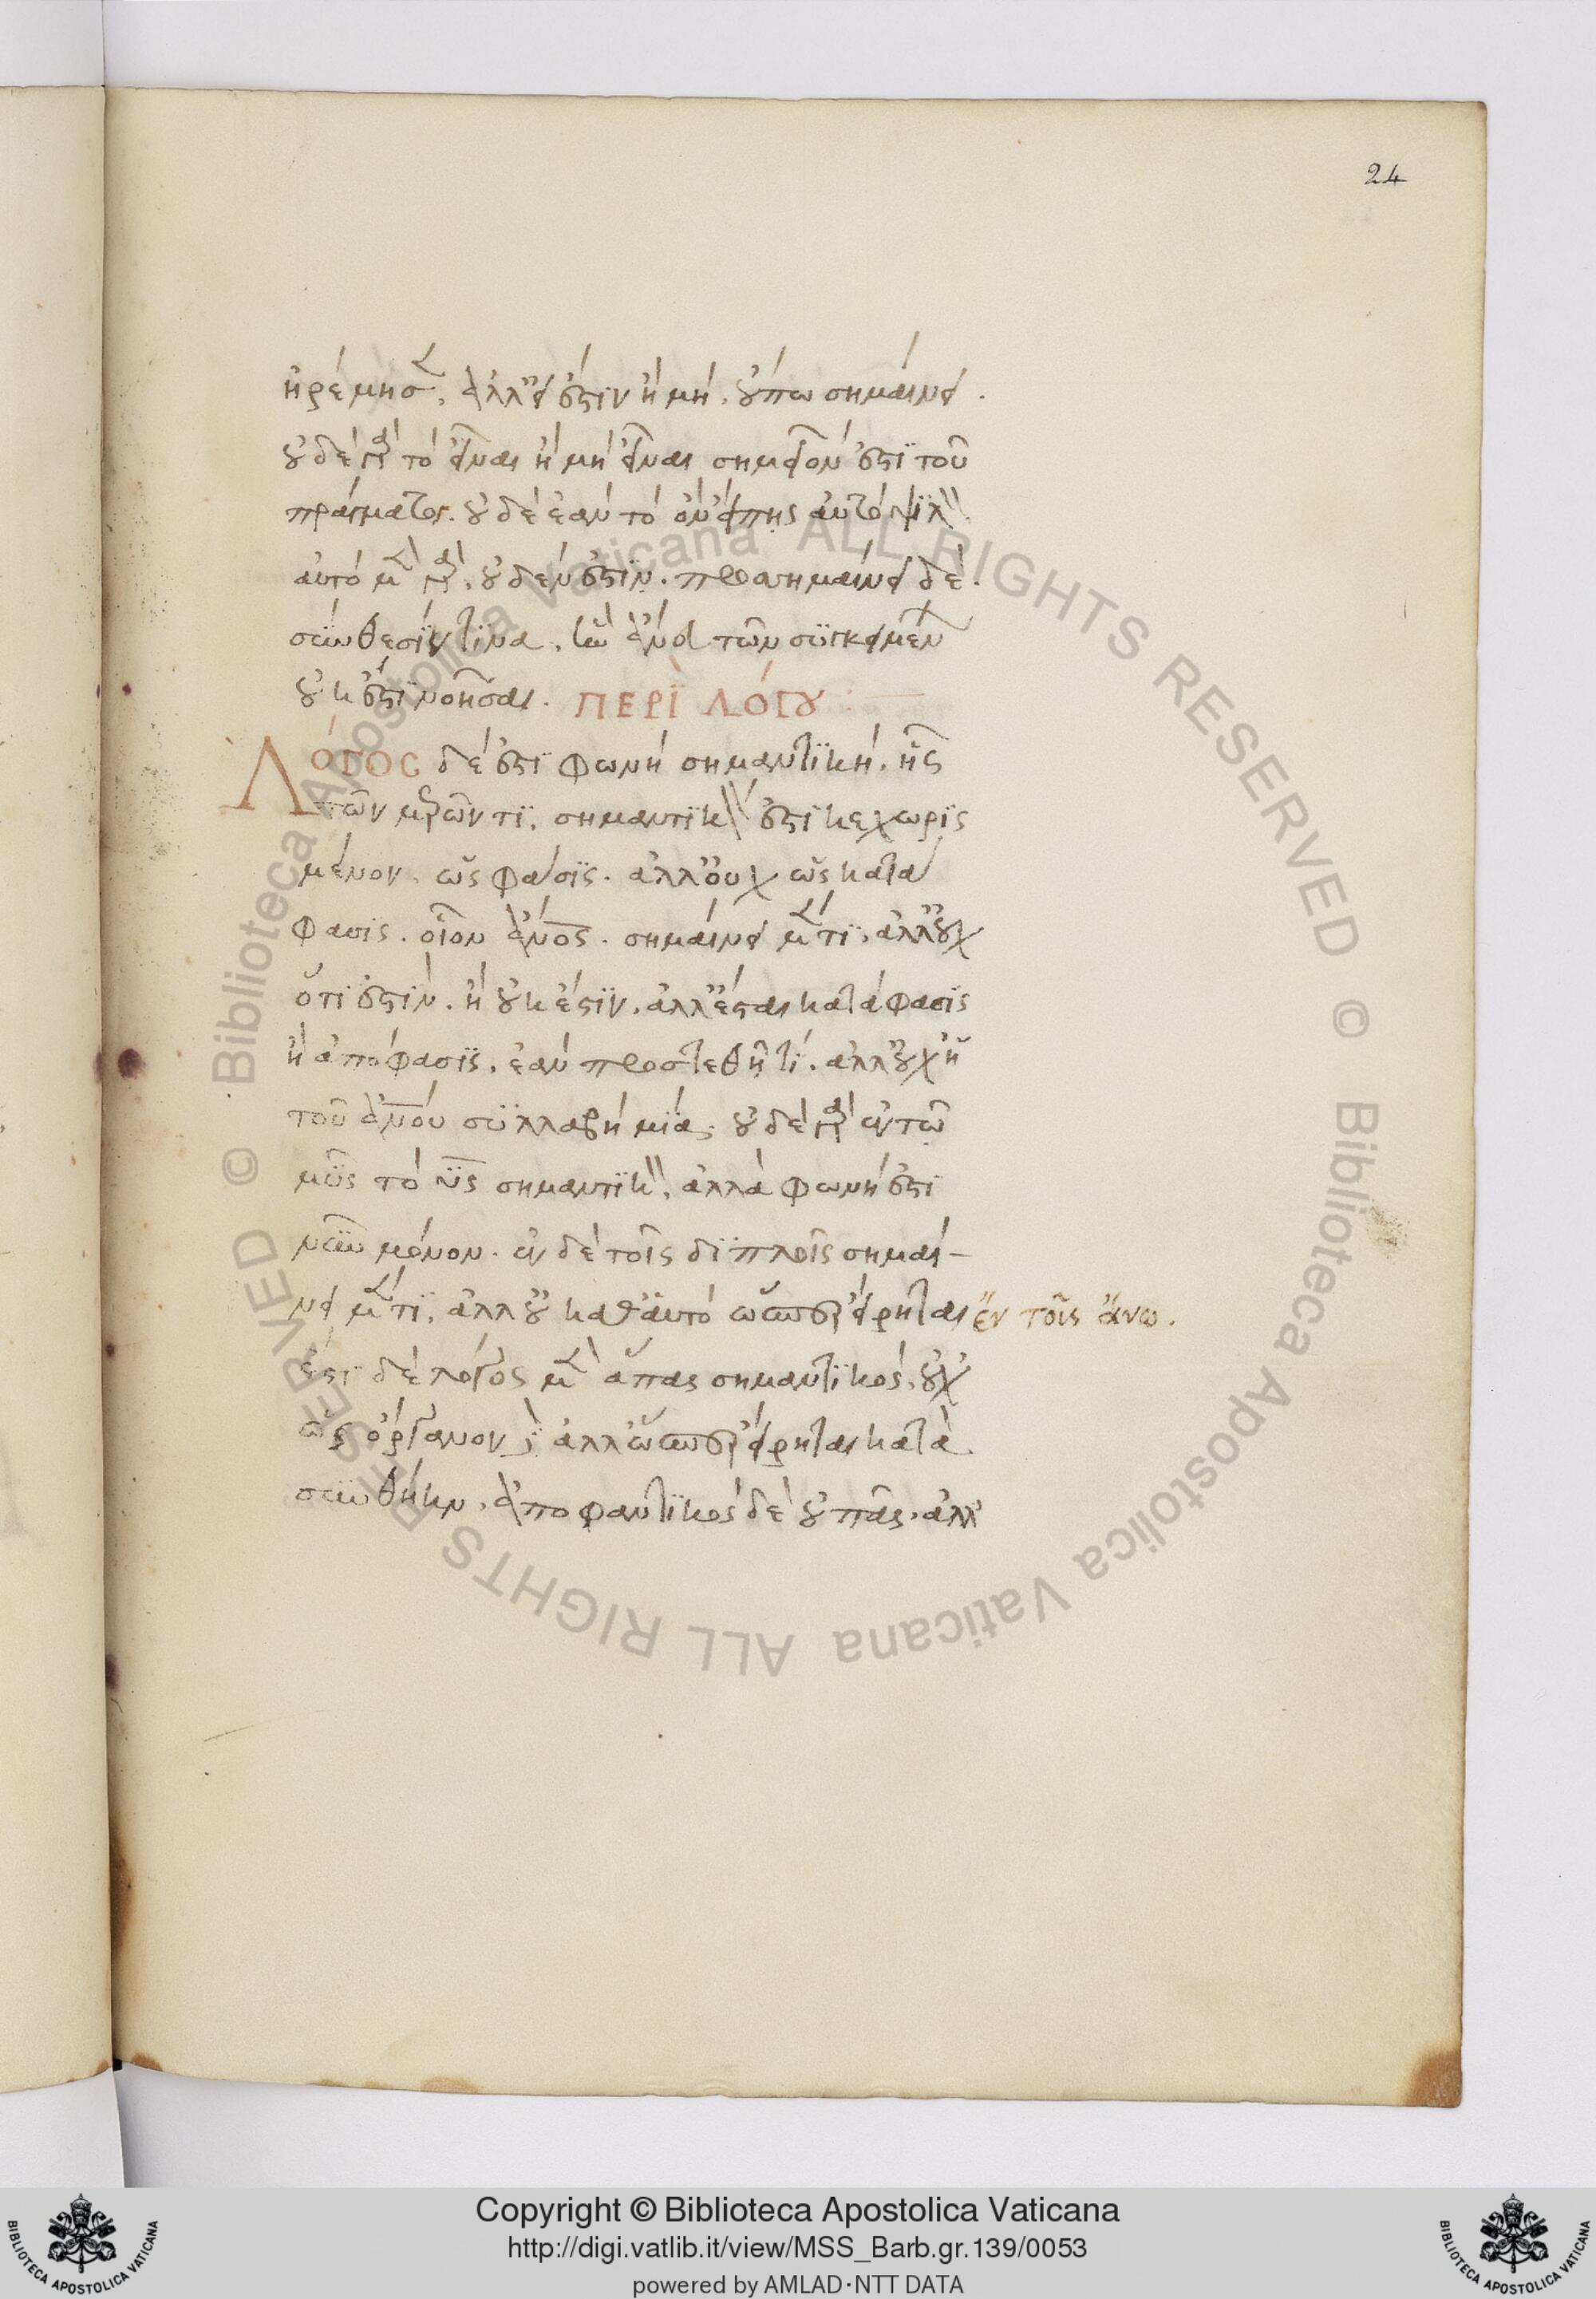 24
ἠρέμησ. ἀλλ' εἰ ἐστὶν ἢ μή. οὔπω σημαίνει.
οὐδὲ γὰρ τὸ εἶναι ἢ μὴ εἶναι σημεῖον ἐστὶ τοῦ
πράγματος. οὐδὲ ἐὰν τὸ ὂν εἴπης αὐτὸ ψιλ
αὐτὸ μὲν γὰρ, οὐδέν ἐστιν. προσημαίνει δὲ
σύνθεσίν τινα. ἣν ἄνευ τῶν συγκειμένων
οὐκ ἔστι νοῆσαι. ΠΕΡῚ ΛΌΓΟΥ
ΛΌΓΟΣ δέ ἐστι φωνὴ σημαντικὴ. ἧς
τῶν μερῶν τι, σημαντικ ἐστὶ κεχωρισ
μένον. ὡς φάσις. ἀλλ' οὐχ ὡς κατά
φασις. οἷον ἄνος. σημαίνει μέν τι, ἀλλ' οὐχ
ὅτι ἐστὶν. ἢ οὐκ ἔστιν. ἀλλ' ἔσται κατάφασις
ἢ ἀπόφασις. ἐὰν προστεθῆ τί. ἀλλ' οὐχ ἡ
τοῦ ἀνου συλλαβὴ μία. οὐδὲ γὰρ ἐν τῶ
μῦς τὸ ῦς σημαντικ, ἀλλὰ φωνή ἐστι
νῦν μόνον. ἐν δὲ τοῖς διπλοῖς σημαί-
νει μέν τι, ἀλλ' οὐ καθ' αὑτὸ ὥσπερ εἴρηται ἐν τοῖς ἄνω.
ἔστι δὲ λόγος μὲν ἅπας σημαντικὸς, οὐχ
ὡς ὄργανον, ἀλλ' ὥσπερ εἴρηται κατὰ
συνθήκην. ἀποφαντικὸς δὲ οὐ πᾶς. ἀλλ'
© Biblioteca Apostolica Vaticana ALL RIGHTS RESERVED © Biblioteca Apostolica Vaticana ALL RIGHTS RESERVED
Copyright © Biblioteca Apostolica Vaticana
http://digi.vatlib.it/view/MSS_Barb.gr.139/0053
powered by AMLAD·NTT DATA
BIBLIOTECA APOSTOLICA VATICANA
BIBLIOTECA APOSTOLICA VATICANA